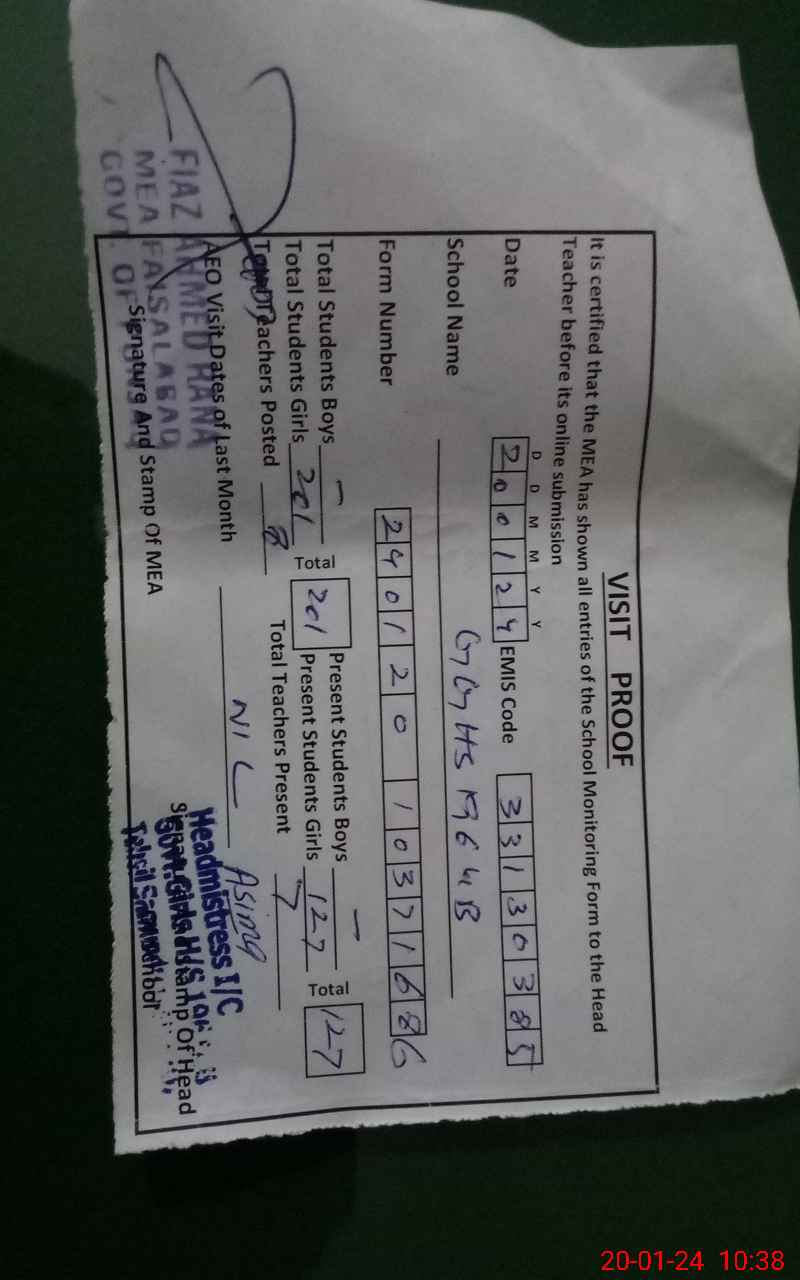 VISIT PROOF
It is certified that the MEA has shown all entries of the School Monitoring Form to the Head
Teacher before its online submission
D D M M Y Y
Date 2 0 0 1 2 4 EMIS Code 3 3 1 3 0 3 8 5
School Name GGHS 196 GB
Form Number 2 4 0 1 2 0 1 0 3 7 1 6 8 6
Total Students Boys - Present Students Boys -
Total Students Girls 201 Total 201 Present Students Girls 127 Total 127
Teachers Posted 8 Total Teachers Present 7
AEO Visit Dates of Last Month NIL
Asima
Signature And Stamp Of MEA
FIAZ AHMED RANA
MEA FAISALABAD
GOVT. OF
Stamp Of Head
Headmistress I/C
Govt. Girls H/S
Tehsil
20-01-24 10:38